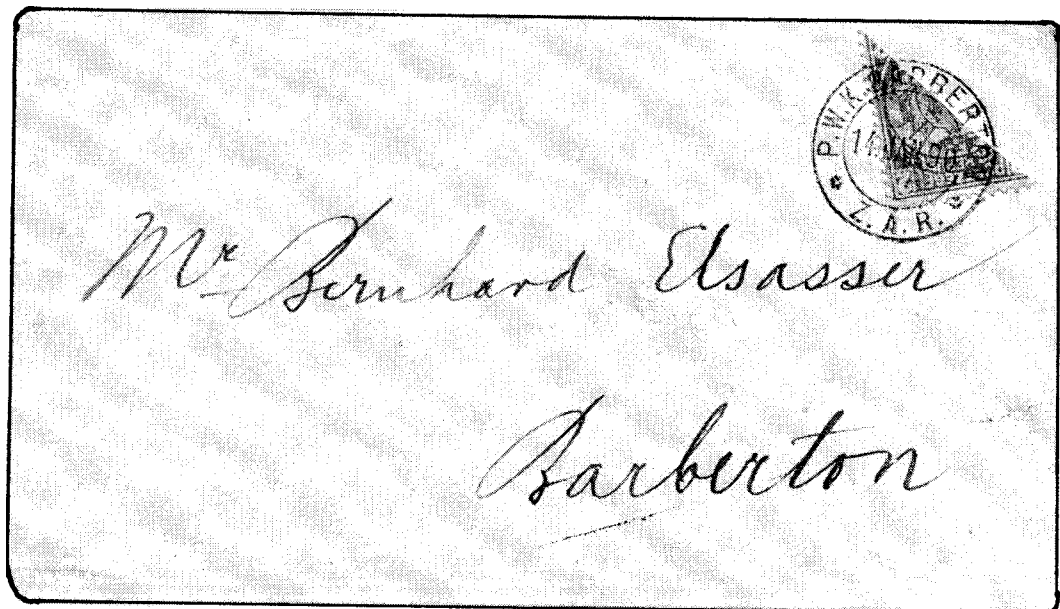 P.W.K. BARBERTON
Z.A.R.
Mr Bernhard Elsasser
Barberton